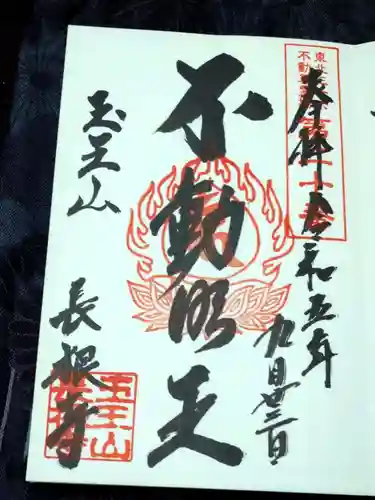 奉拝 令和五年
九月廿三日
不動明王
玉王山
長根寺
玉王山